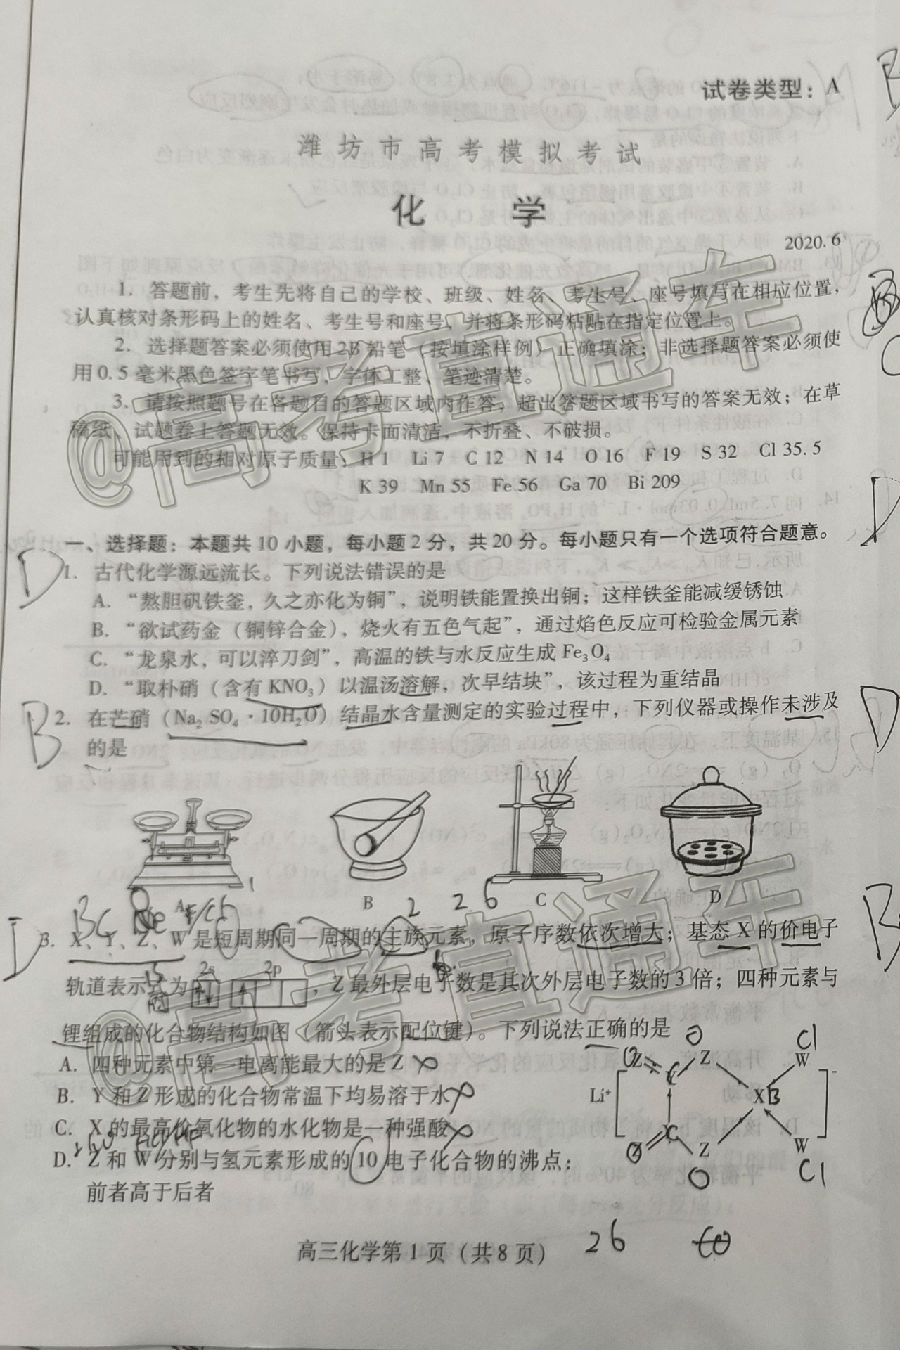 试卷类型：A
潍坊市高考模拟考试
化 学
2020.6
1．答题前，考生先将自己的学校、班级、姓名、考生号、座号填写在相应位置，
认真核对条形码上的姓名、考生号和座号，并将条形码粘贴在指定位置上。
2．选择题答案必须使用2B铅笔（按填涂样例）正确填涂；非选择题答案必须使
用0.5毫米黑色签字笔书写，字体工整、笔迹清楚。
3．请按照题号在各题目的答题区域内作答，超出答题区域书写的答案无效；在草
稿纸、试题卷上答题无效。保持卡面清洁，不折叠、不破损。
可能用到的相对原子质量：H 1 Li 7 C 12 N 14 O 16 F 19 S 32 Cl 35.5
K 39 Mn 55 Fe 56 Ga 70 Bi 209
一、选择题：本题共10小题，每小题2分，共20分。每小题只有一个选项符合题意。
D
1．古代化学源远流长。下列说法错误的是
A．“熬胆矾铁釜，久之亦化为铜”，说明铁能置换出铜；这样铁釜能减缓锈蚀
B．“欲试药金（铜锌合金），烧火有五色气起”，通过焰色反应可检验金属元素
C．“龙泉水，可以淬刀剑”，高温的铁与水反应生成Fe₃O₄
D．“取朴硝（含有KNO₃）以温汤溶解，次早结块”，该过程为重结晶
B
2．在芒硝（Na₂SO₄·10H₂O）结晶水含量测定的实验过程中，下列仪器或操作未涉及
的是
A B C D
2 2 6
3．X、Y、Z、W是短周期同一周期的主族元素，原子序数依次增大；基态X的价电子
轨道表示式为 2s 2p ，Z最外层电子数是其次外层电子数的3倍；四种元素与
锂组成的化合物结构如图（箭头表示配位键）。下列说法正确的是
A．四种元素中第一电离能最大的是Z
B．Y和Z形成的化合物常温下均易溶于水
C．X的最高价氧化物的水化物是一种强酸
D．Z和W分别与氢元素形成的10电子化合物的沸点：
前者高于后者
Li⁺
Z Z W
Y X
Y
Z Z W
O Cl
C B
O Cl
26
高三化学第1页（共8页）
@高考直通车
@高考直通车